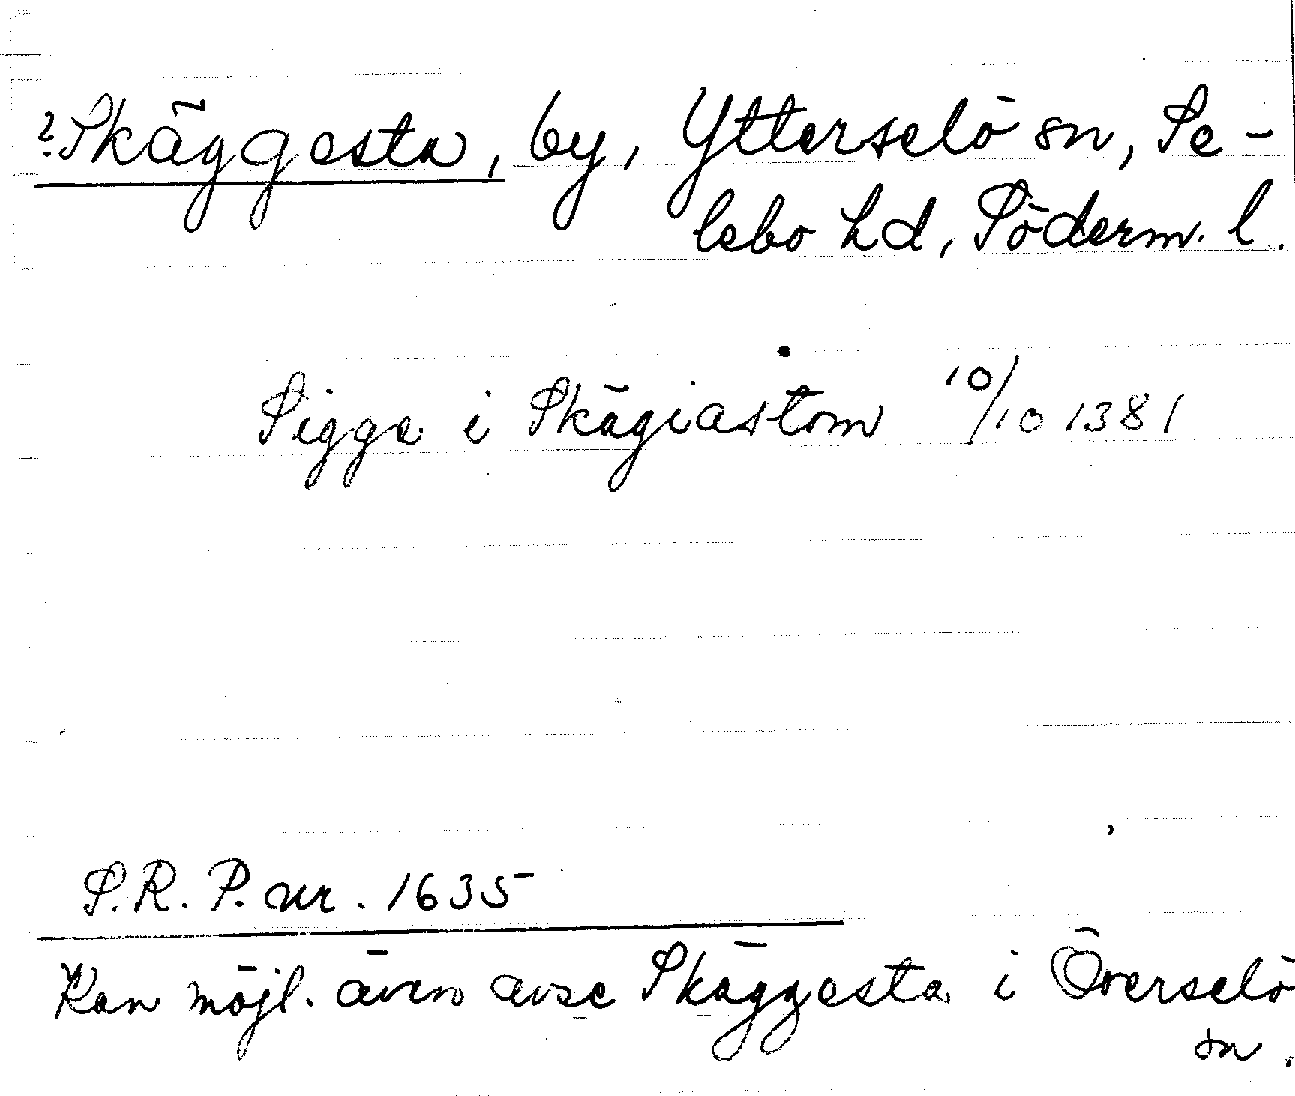 ? Skäggesta, by, Ytterselö sn, Se-
lebo hd, Söderm. l.
Sigge i Skägiastom 10/10 1381
S.R.P. nr. 1635
Kan möjl. även avse Skäggesta i Överselö
sn.